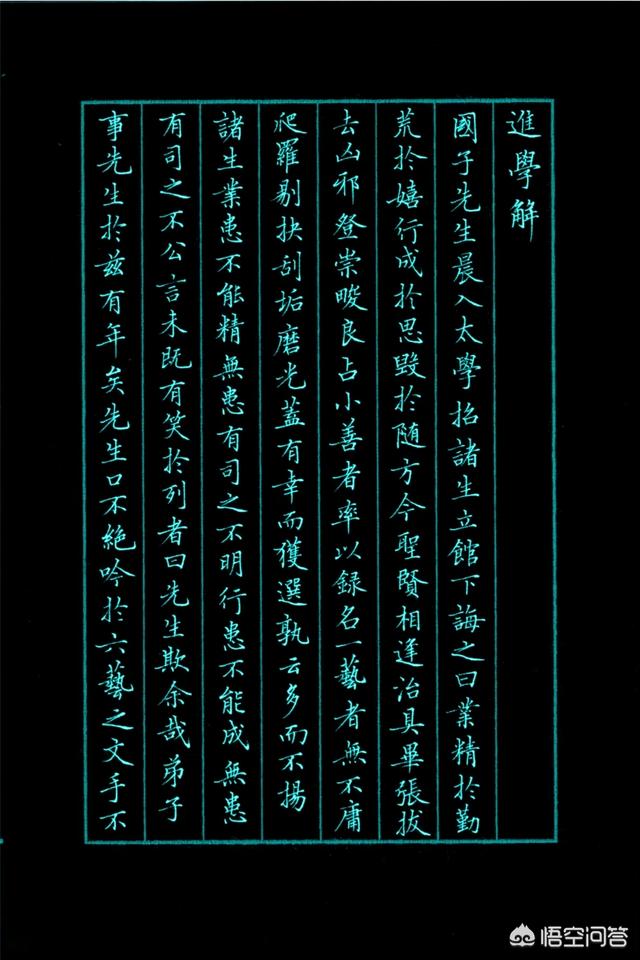 進學解
國子先生晨入太學招諸生立館下誨之曰業精於勤
荒於嬉行成於思毀於随方今聖賢相逢治具畢張拔
去凶邪登崇畯良占小善者率以録名一藝者無不庸
爬羅剔抉刮垢磨光蓋有幸而獲選孰云多而不揚
諸生業患不能精無患有司之不明行患不能成無患
有司之不公言未既有笑於列者曰先生欺余哉弟子
事先生於兹有年矣先生口不絶吟於六藝之文手不
悟空问答